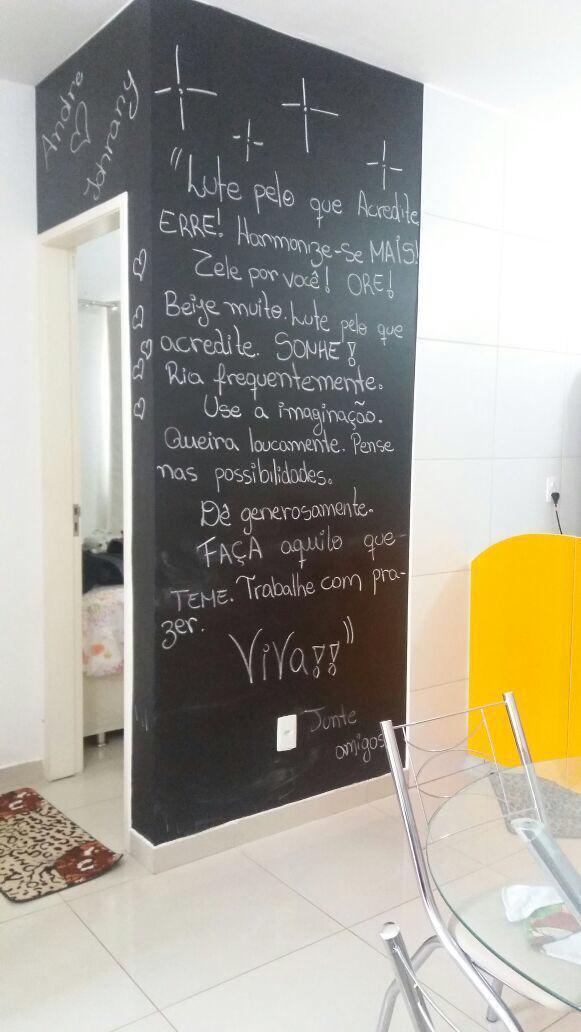 Andre
Johrany
"Lute pelo que Acredite
ERRE! Harmonize-se MAIS!
Zele por você! ORE!
Beije muito. Lute pelo que
acredite. SONHE!
Ria frequentemente.
Use a imaginação.
Queira loucamente. Pense
nas possibilidades.
Dê generosamente.
FAÇA aquilo que
TEME. Trabalhe com pra-
zer.
ViVa!!"
Junte
amigos